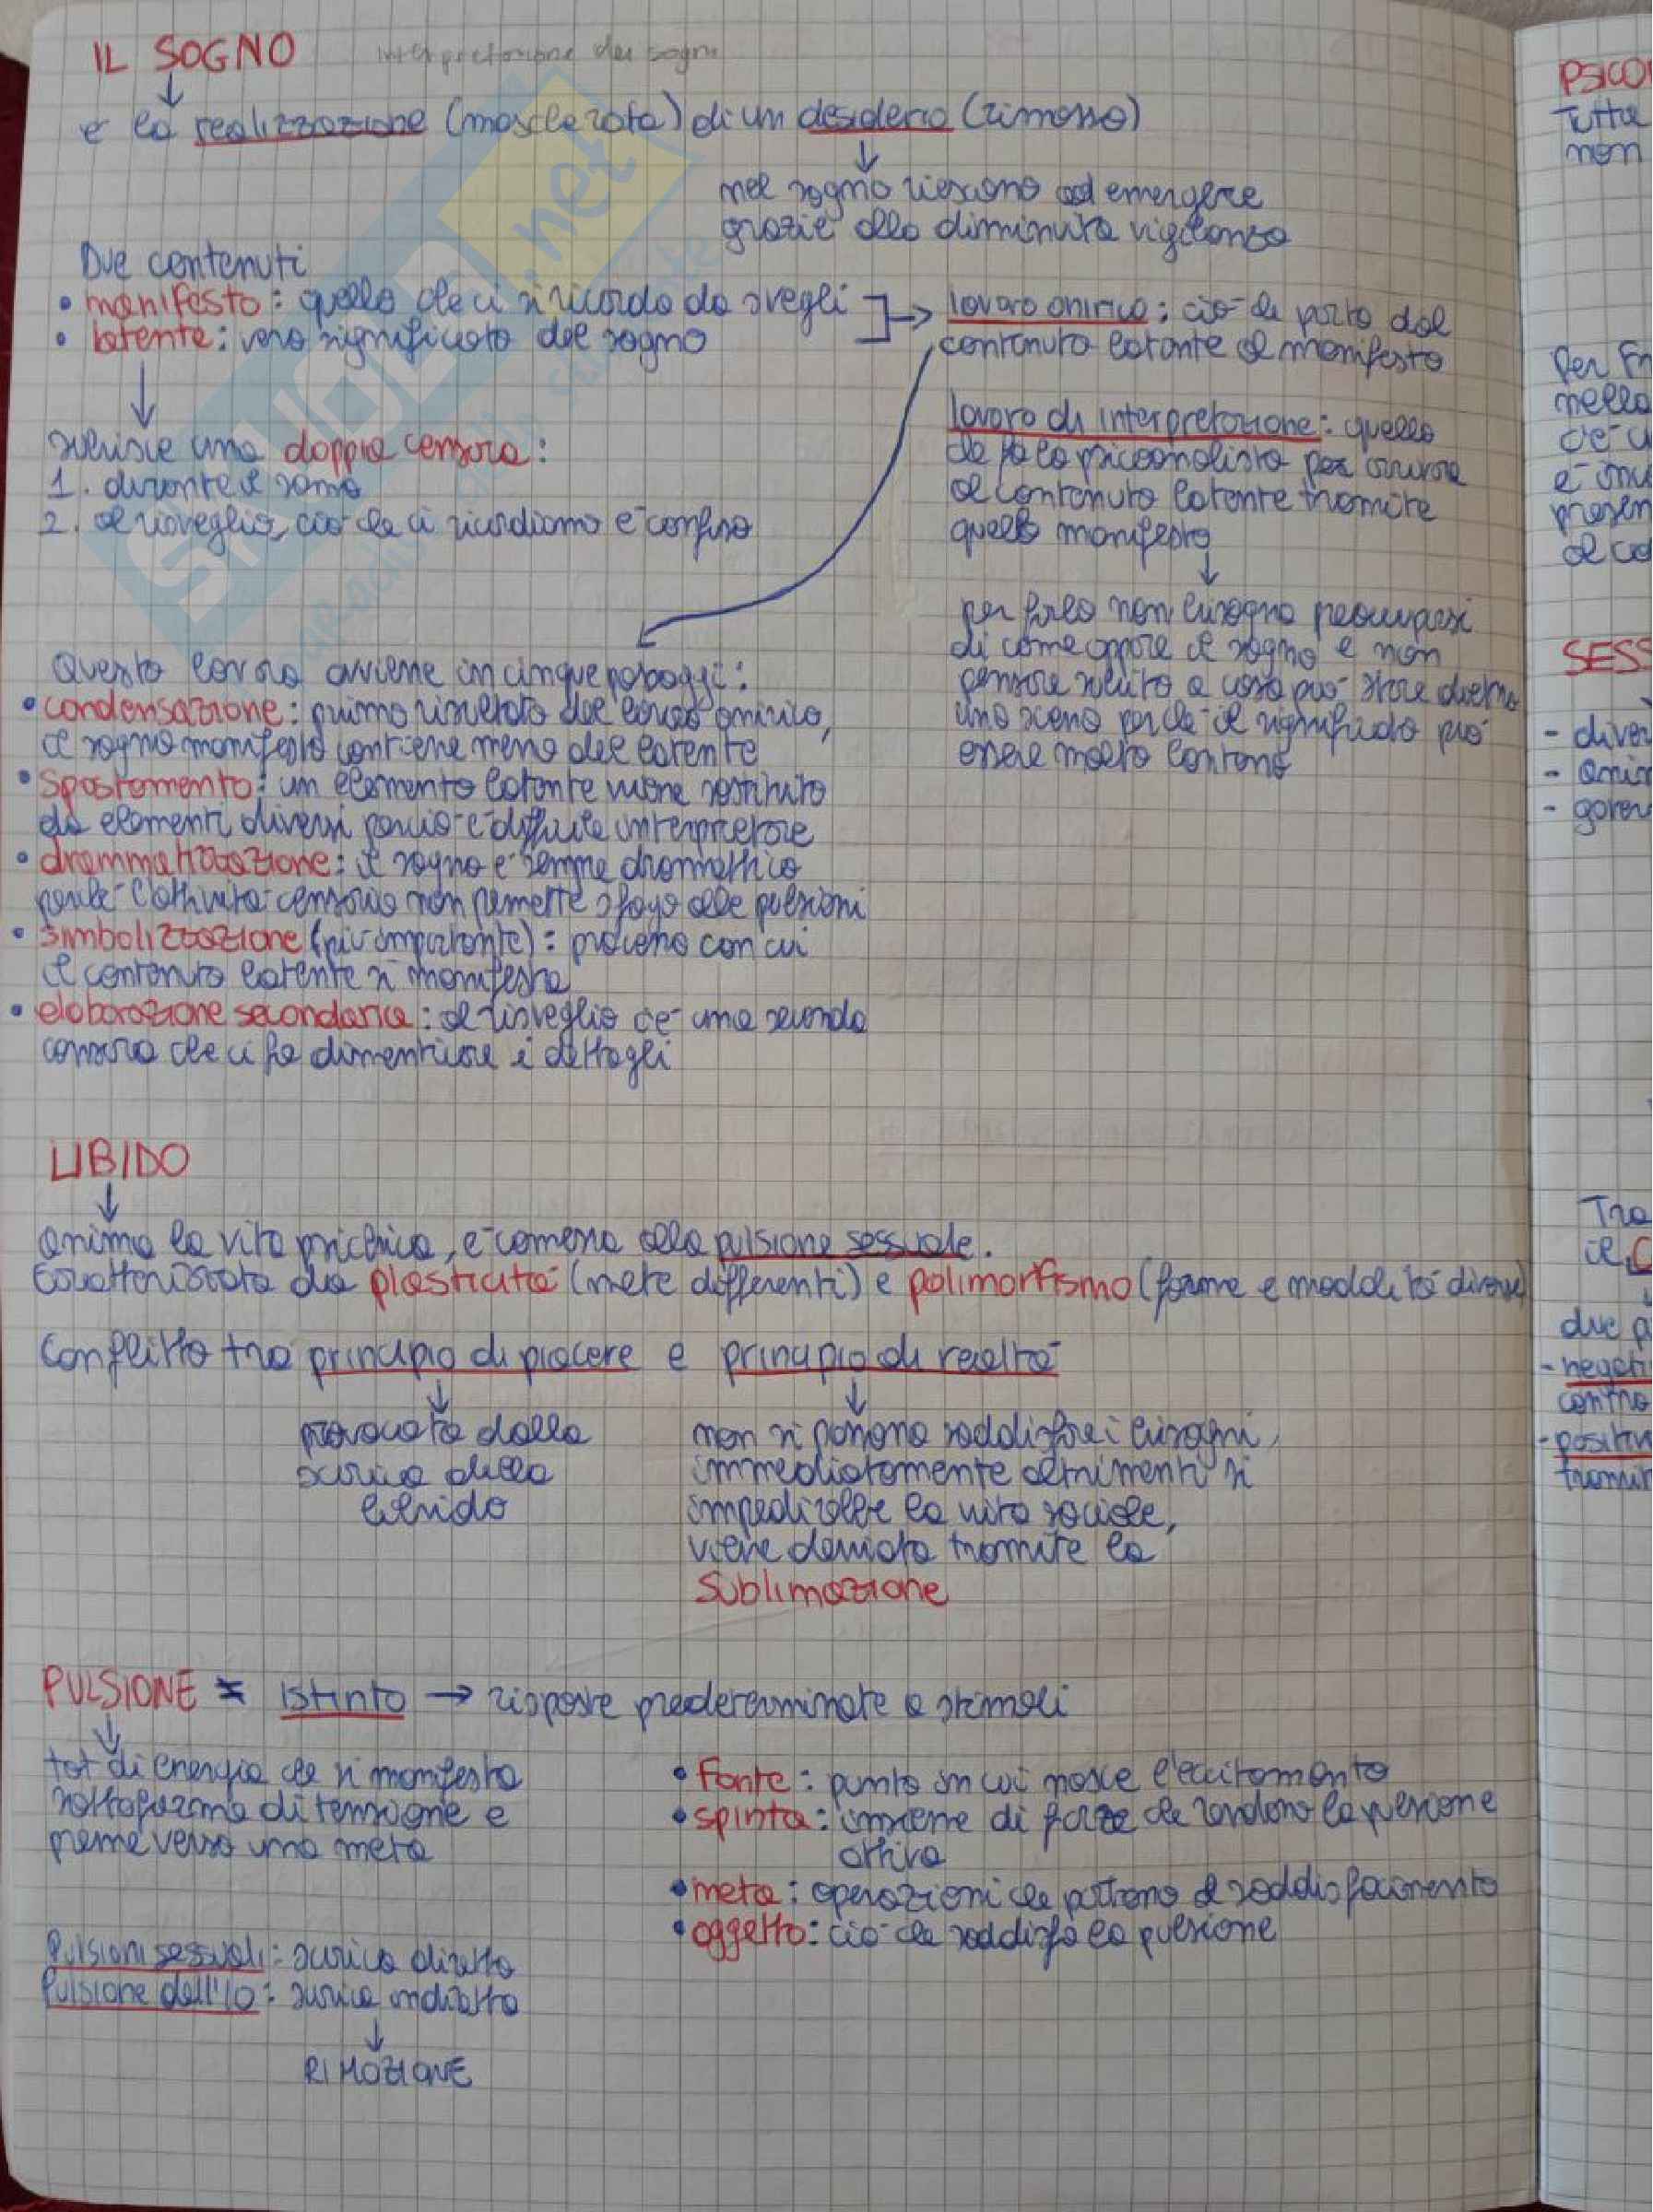 IL SOGNO interpretazione dei sogni
è la realizzazione (mascherata) di un desiderio (rimosso)
nel sogno riescono ad emergere
grazie alla diminuita vigilanza
Due contenuti
• manifesto: quello che ci si ricorda da svegli
• latente: vero significato del sogno
lavoro onirico: ciò che porta dal
contenuto latente al manifesto
subisce una doppia censura:
1. durante il sonno
2. al risveglio, ciò che ci ricordiamo è confuso
lavoro di interpretazione: quello
che fa lo psicoanalista per arrivare
al contenuto latente tramite
quello manifesto
per farlo non bisogna preoccuparsi
di come appare il sogno e non
pensare subito a cosa può
una scena perché il significato può
essere molto lontano
Questo lavoro avviene in cinque passaggi:
• condensazione: primo risultato del lavoro onirico,
il sogno manifesto contiene meno del latente
• spostamento: un elemento latente viene sostituito
da elementi diversi perciò è difficile interpretare
• drammatizzazione: il sogno è sempre drammattico
perché l'attività censoria non permette sfogo alle pulsioni
• simbolizzazione (più importante): processo con cui
il contenuto latente si manifesta
• elaborazione secondaria: al risveglio c'è una seconda
censura che ci fa dimenticare i dettagli
LIBIDO
anima la vita psichica, è connessa alla pulsione sessuale.
Caratterizzata da plasticità (mete differenti) e polimorfismo (forme e modalità diverse)
Conflitto tra principio di piacere e principio di realtà
provocato dalla
scarica della
libido
non si possono soddisfare i bisogni
immediatamente altrimenti si
impedirebbe la vita sociale,
viene deviata tramite la
Sublimazione
PULSIONE ≠ istinto → risposte predeterminate a stimoli
tot di energia che si manifesta
sottoforma di tensione e
preme verso una meta
• Fonte: punto in cui nasce l'eccitamento
• spinta: insieme di forze che rendono la pulsione
attiva
• meta: operazioni che portano al soddisfacimento
• oggetto: ciò che soddisfa la pulsione
Pulsioni sessuali: scarica diretta
Pulsione dell'Io: scarica indiretta
RIMOZIONE
Tutta
non
nella
c'è
SESS
Tra
il
due
contro
studenti.net